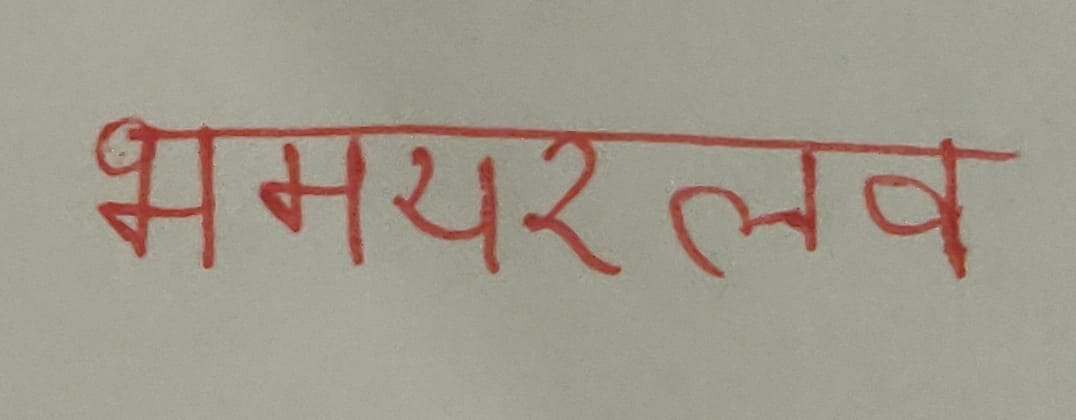 भमयरलव